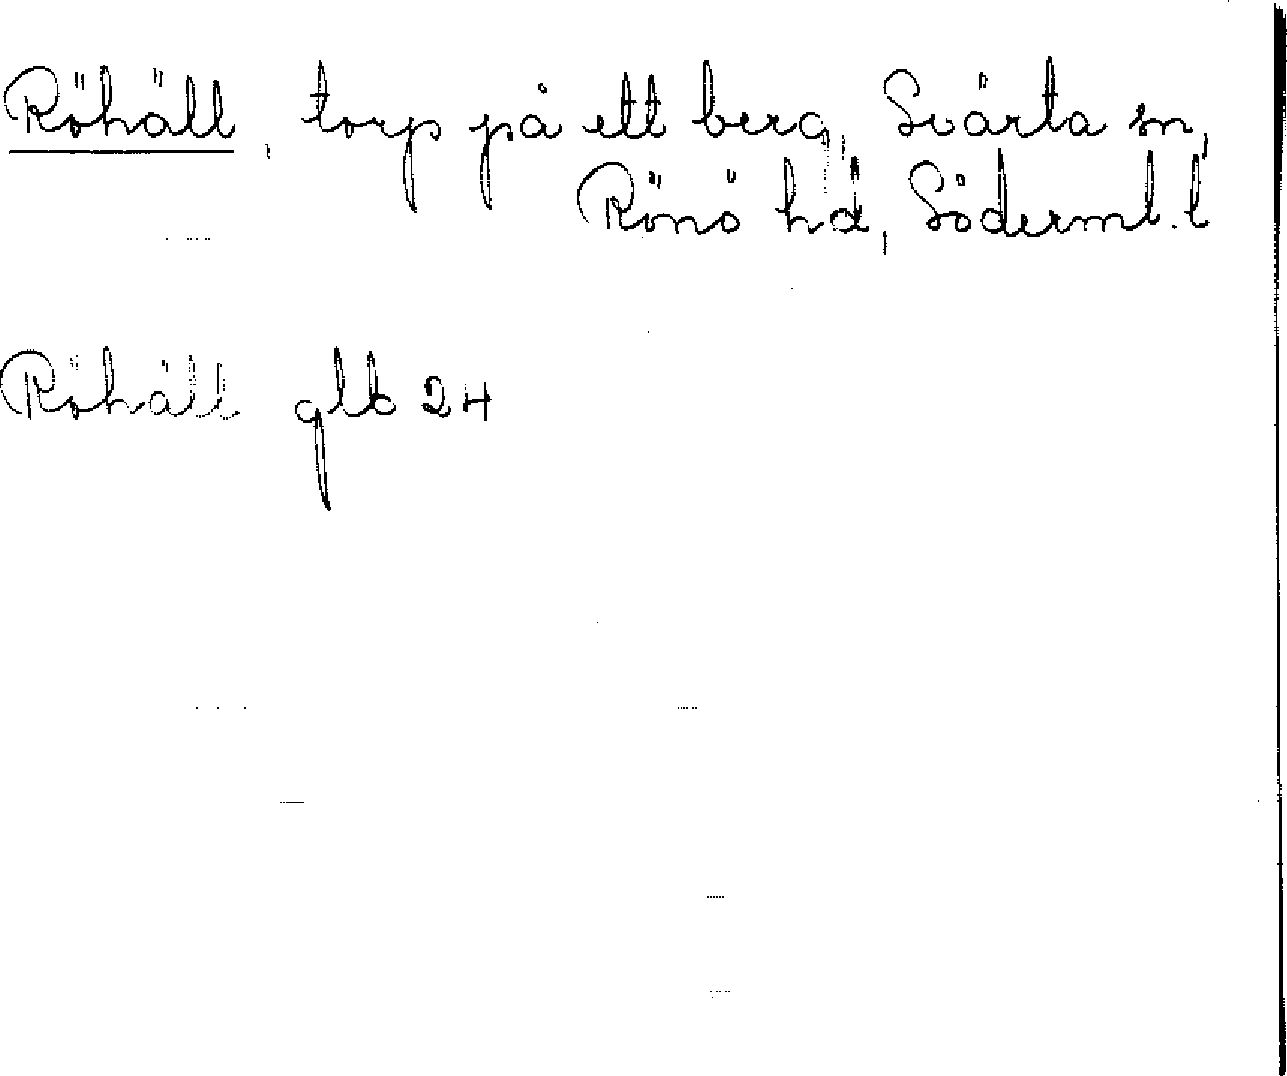 Röhäll, torp på ett berg, Svärta sn,
Rönö hd, Söderml. l
Röhäll glb 24